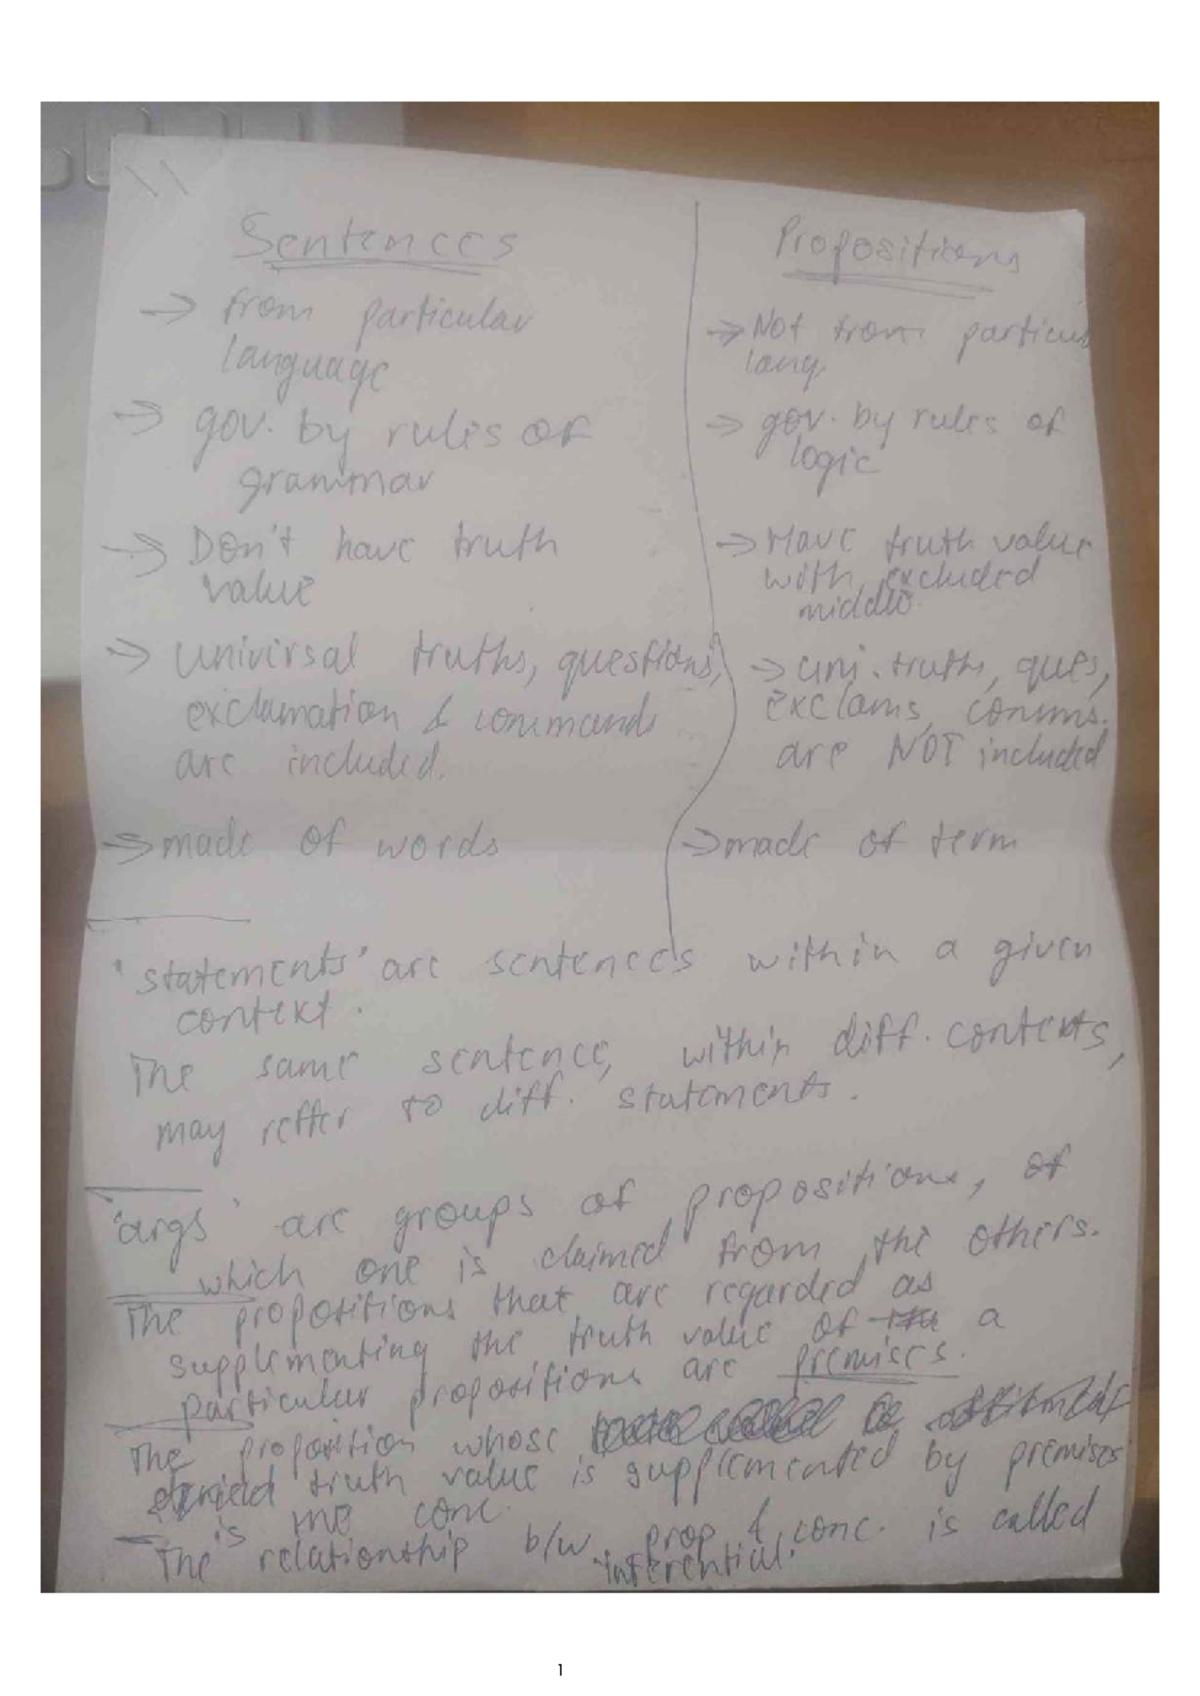 Sentences
→ from particular
language
→ gov. by rules of
grammar
→ Don't have truth
value
→ universal truths, questions,
exclamation & commands
are included.
→ made of words
Propositions
→ Not from particu
lang.
→ gov. by rules of
logic
→ Have truth value
with excluded
middle.
→ uni. truth, ques,
exclams, comms.
are NOT included
→ made of term
'statements' are sentences within a given
context.
The same sentence, within diff. contexts,
may reffer to diff. statements.
'args' are groups of propositions, of
which one is claimed from the others.
The propositions that are regarded as
supplementing the truth value of a
particular propositions are premises.
The proposition whose
truth value is supplemented by premises
is the conc.
The relationship b/w prop & conc. is called
inferential.
1